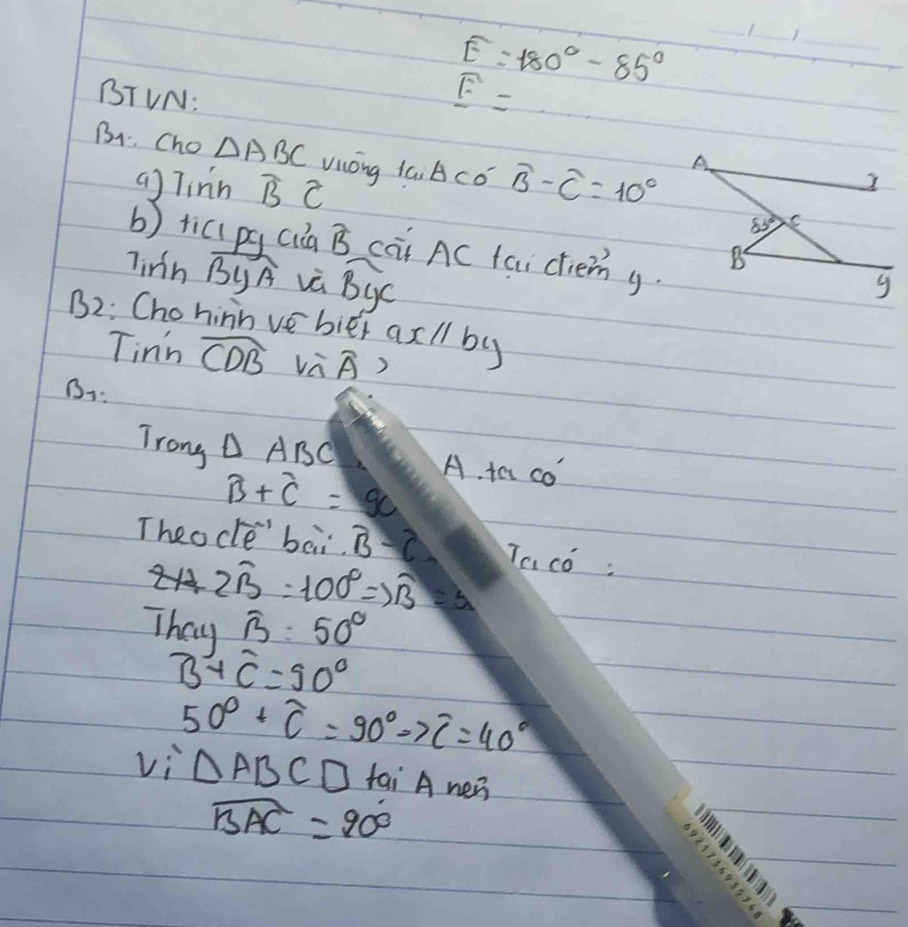 Ê = 180° - 85°
Ê =
BTVN:
B1: Cho ΔABC vuông tại A có B̂ - Ĉ = 10°
a) Tính B̂ Ĉ
b) tia pg của B̂ cắt AC tại điểm y.
Tính ByA và Byc
B2: Cho hình vẽ biết ax // by
Tính CDB và Â ?
A
x
85° C
B
y
B1:
Trong Δ ABC A. ta có
B̂ + Ĉ = 90
Theo đề bài. B̂ - Ĉ Ta có :
2B̂ = 100° => B̂ = 5
Thay B̂ = 50°
B̂ + Ĉ = 90°
50° + Ĉ = 90° -> Ĉ = 40°
Vì ΔABC □ tại A nên
BAC = 90°
6921734935748